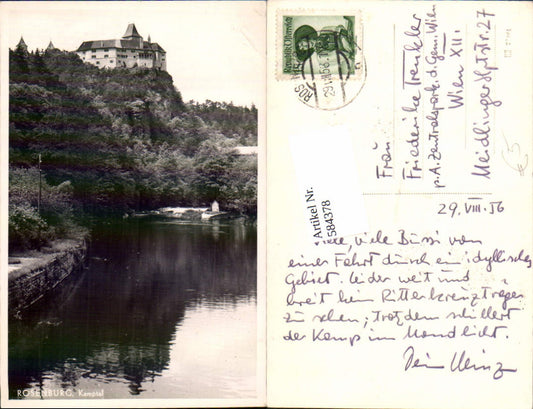 ROSENBURG, Kamptal
Republik Österreich
29.
Artikel Nr.
584378
Frau
Friederike Trenkler
p. A. Zentralspark. d. Gem. Wien
Wien XII.
Meidlinger Hptstr. 27
29. VIII. 56
viele Bussi von
einer Fahrt durch ein idyllisches
Gebiet. Leider weit und
breit kein Ritterkreuzträger
zu sehen; trotzdem schillert
der Kamp im Mondlicht.
Dein Heinz